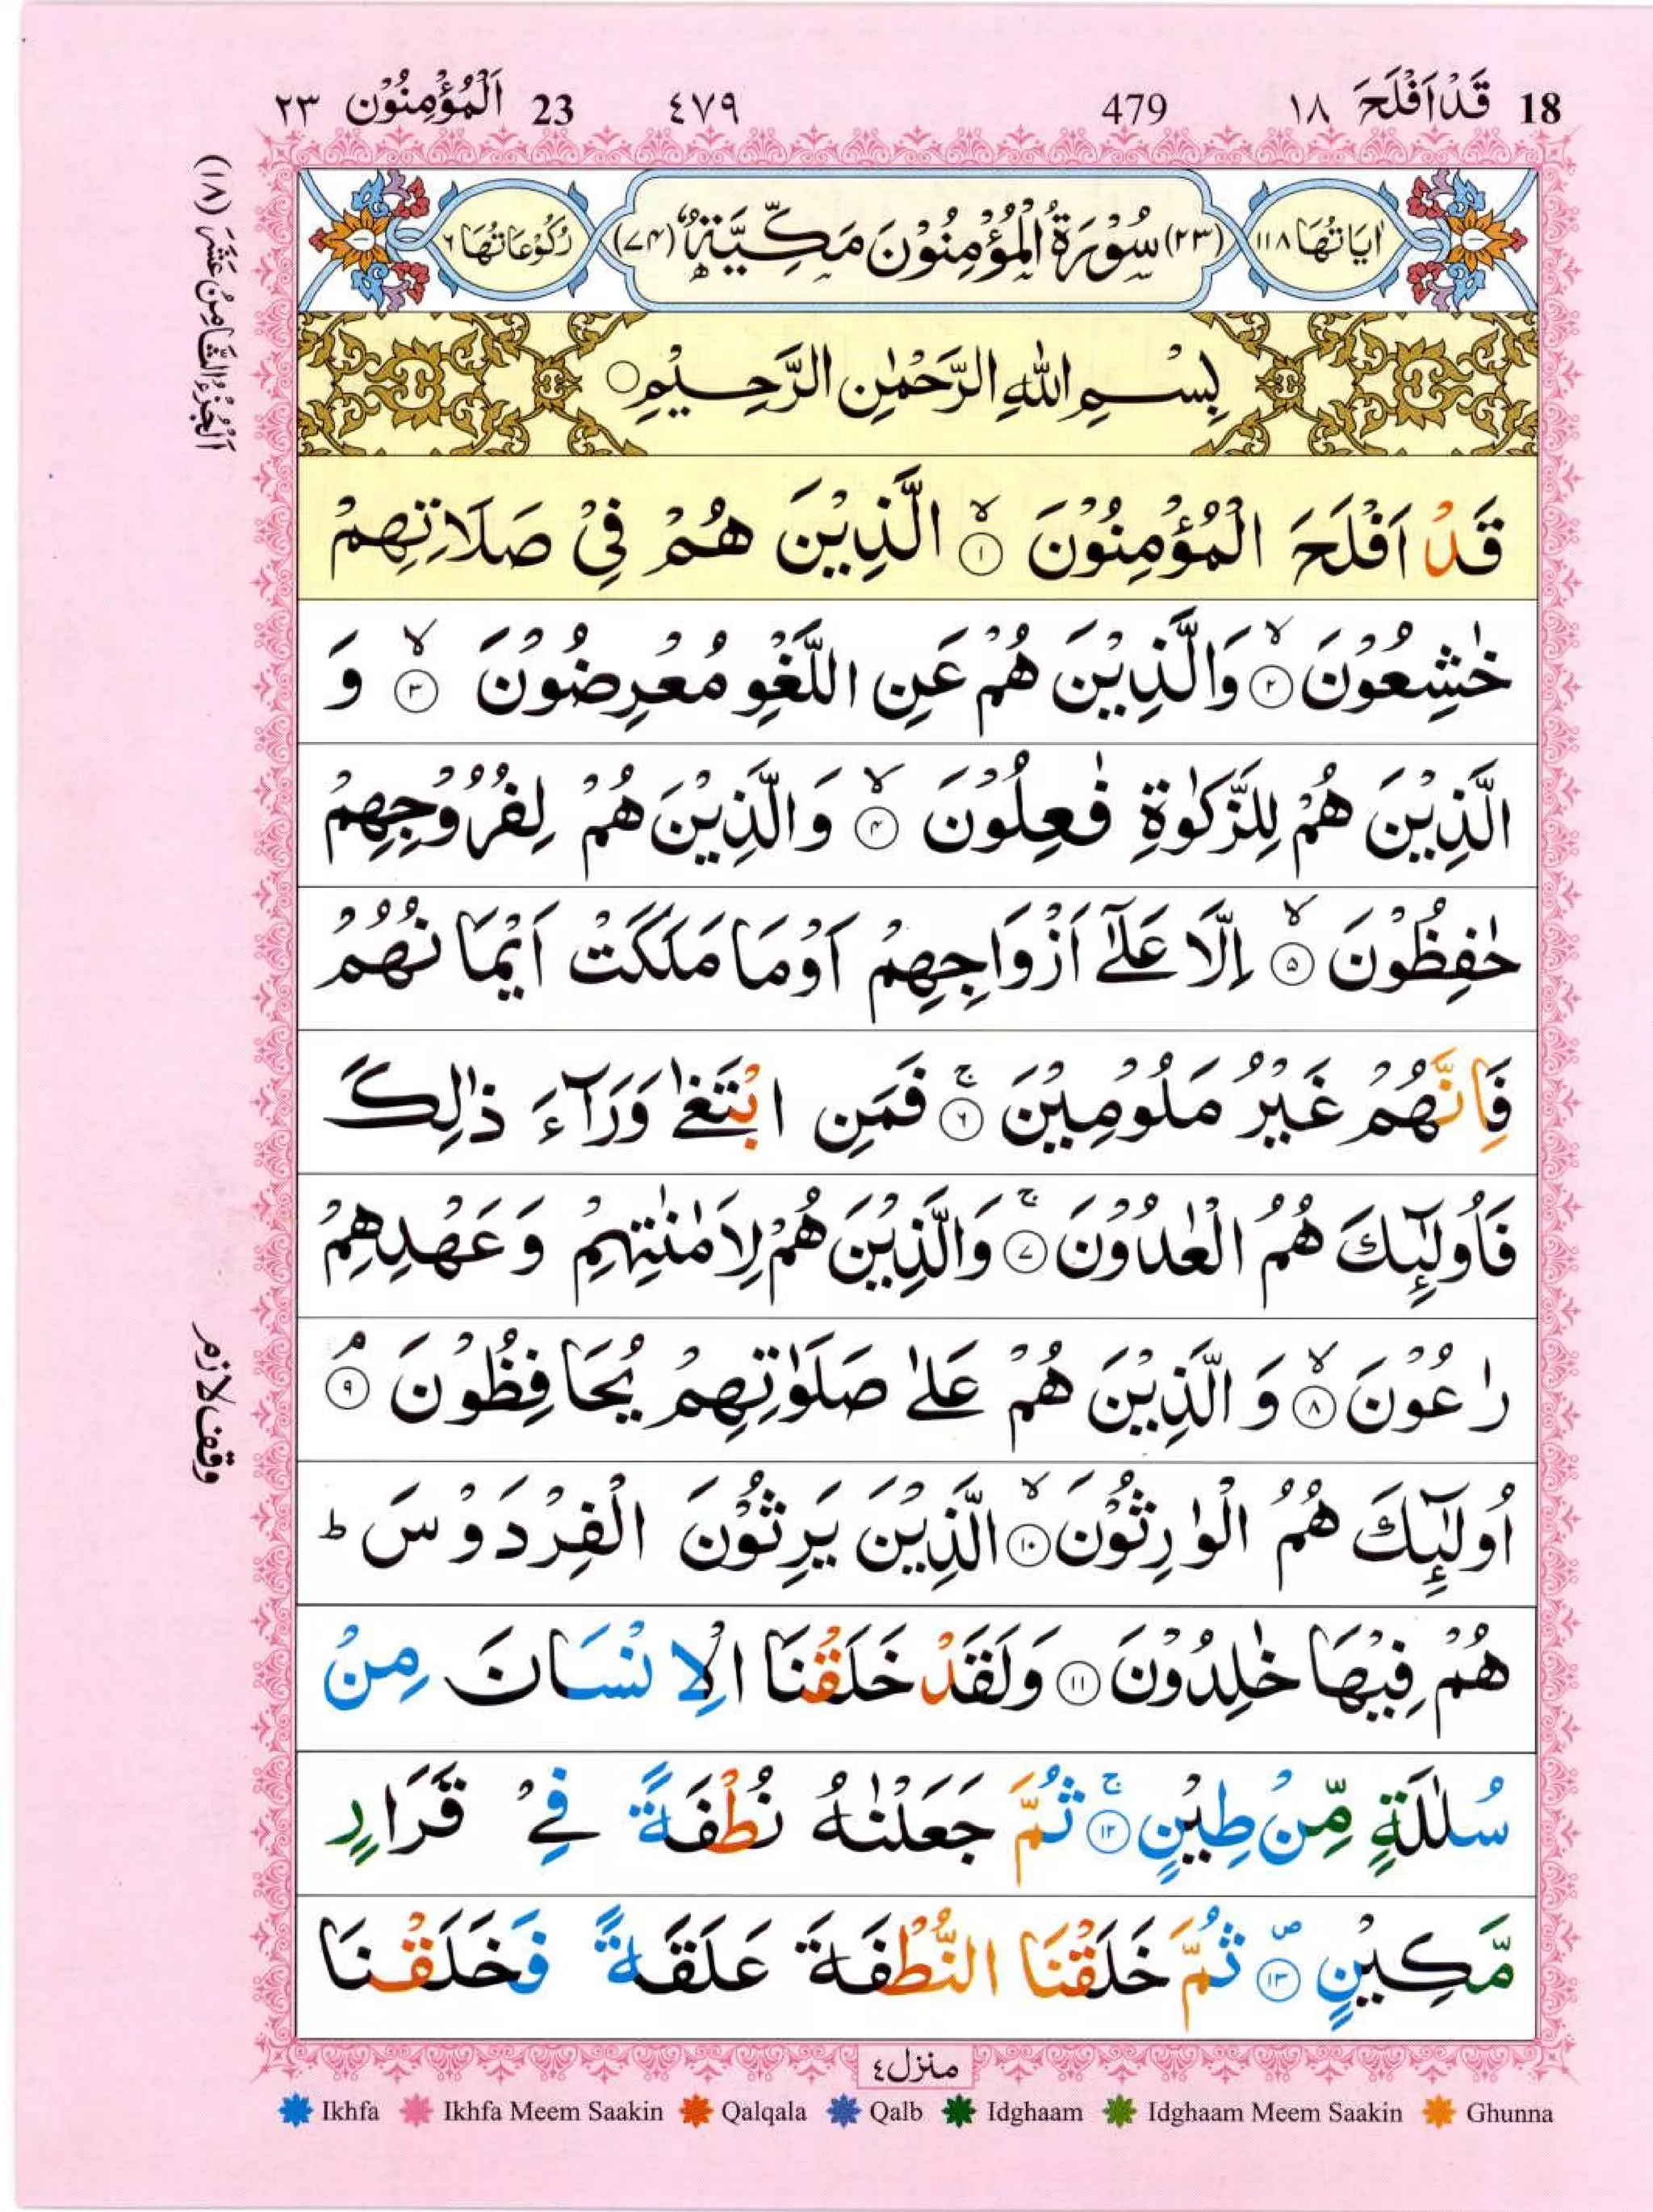 18 قَدْ اَفْلَحَ ١٨ 479 ٤٧٩ 23 اَلْمُؤْمِنُوْن ٢٣
اَلْجُزْءُ الثَّامِنُ عَشَرَ (١٨)
اٰيَاتُهَا ١١٨ (٢٣) سُوْرَةُ الْمُؤْمِنُوْنَ مَكِّيَّةٌ (٧٤) رُكُوْعَاتُهَا ٦
بِسْمِ اللّٰهِ الرَّحْمٰنِ الرَّحِيْمِ ○
قَدْ اَفْلَحَ الْمُؤْمِنُوْنَ ۙ ١ الَّذِيْنَ هُمْ فِيْ صَلَاتِهِمْ
خٰشِعُوْنَ ۙ ٢ وَالَّذِيْنَ هُمْ عَنِ اللَّغْوِ مُعْرِضُوْنَ ۙ ٣ وَ
الَّذِيْنَ هُمْ لِلزَّكٰوةِ فٰعِلُوْنَ ۙ ٤ وَالَّذِيْنَ هُمْ لِفُرُوْجِهِمْ
حٰفِظُوْنَ ۙ ٥ اِلَّا عَلٰٓى اَزْوَاجِهِمْ اَوْ مَا مَلَكَتْ اَيْمَانُهُمْ
فَاِنَّهُمْ غَيْرُ مَلُوْمِيْنَ ۚ ٦ فَمَنِ ابْتَغٰى وَرَآءَ ذٰلِكَ
فَاُولٰٓئِكَ هُمُ الْعٰدُوْنَ ۚ ٧ وَالَّذِيْنَ هُمْ لِاَمٰنٰتِهِمْ وَعَهْدِهِمْ
رٰعُوْنَ ۙ ٨ وَالَّذِيْنَ هُمْ عَلٰى صَلَوٰتِهِمْ يُحَافِظُوْنَ ۘ ٩
وقف لازم
اُولٰٓئِكَ هُمُ الْوٰرِثُوْنَ ۙ ١٠ الَّذِيْنَ يَرِثُوْنَ الْفِرْدَوْسَ ؕ
هُمْ فِيْهَا خٰلِدُوْنَ ١١ وَلَقَدْ خَلَقْنَا الْاِنْسَانَ مِنْ
سُلٰلَةٍ مِّنْ طِيْنٍ ۚ ١٢ ثُمَّ جَعَلْنٰهُ نُطْفَةً فِيْ قَرَارٍ
مَّكِيْنٍ ۪ ١٣ ثُمَّ خَلَقْنَا النُّطْفَةَ عَلَقَةً فَخَلَقْنَا
منزل ٤
Ikhfa Ikhfa Meem Saakin Qalqala Qalb Idghaam Idghaam Meem Saakin Ghunna